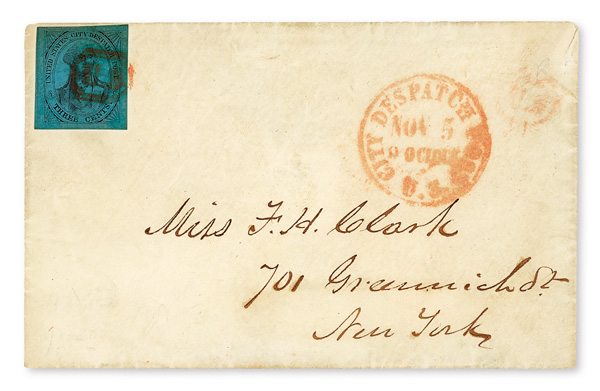 UNITED STATES CITY DESPATCH POST
THREE CENTS
U.S
CITY DESPATCH POST
NOV 5
9 OCLOCK
U.S.
Miss F. H. Clark
701 Greenwich St
New York